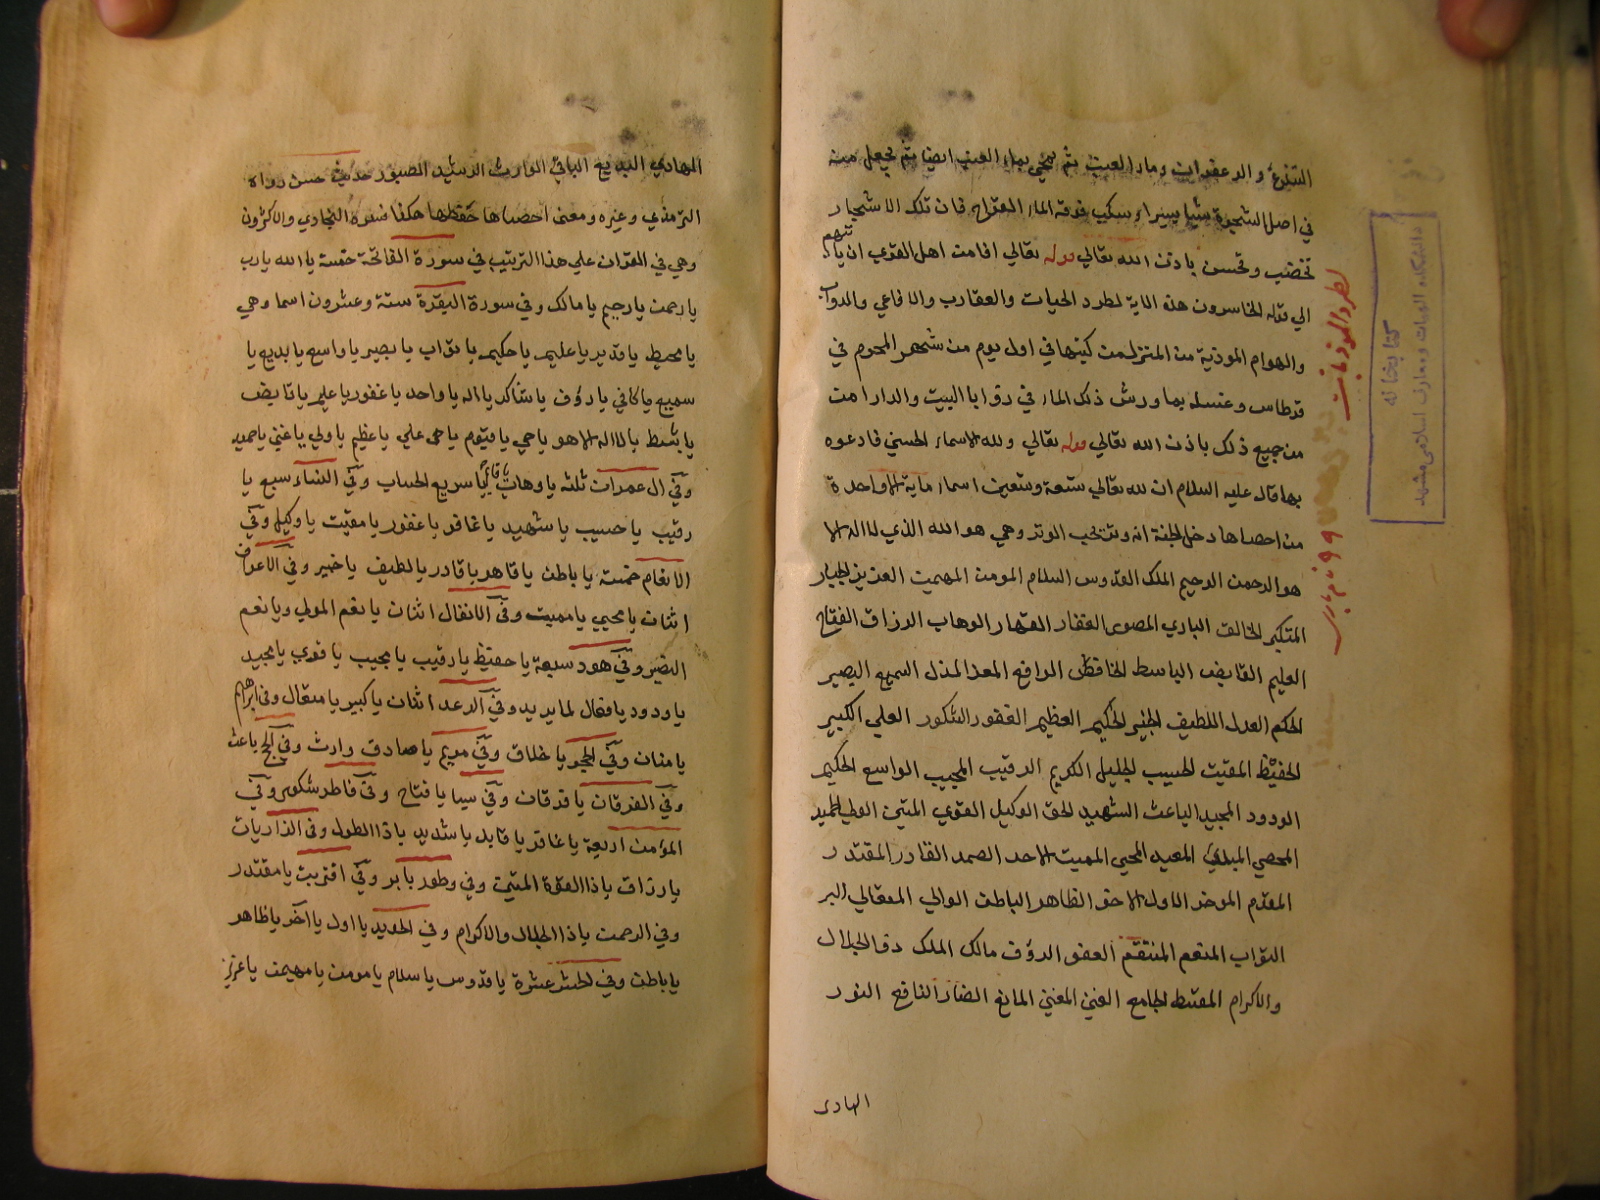 والزعفران وماء العنب ثم يمحى بماء العنب ايضا ثم يجعل منه
في اصل الشجرة شيا يسيرا ويسكب فوقه الماء القراح فان تلك الاشجار
تخصب وتحسن باذن الله تعالي قوله تعالي افامن اهل القري ان ياتيهم
الي قوله الخاسرون هذه الاية لطرد الحيات والعقارب والافاعي والدواب
والهوام الموذية من المنزل من كتبها في اول يوم من شهر المحرم في
قرطاس وغسله بما ورش ذلك الماء في زوايا البيت والدار امن
من جميع ذلك باذن الله تعالي قوله تعالي ولله الاسماء الحسني فادعوه
بها قال عليه السلام ان لله تعالي تسعة وتسعين اسما ماية الا واحدة
من احصاها دخل الجنة انه وتر يحب الوتر وهي هو الله الذي لا اله الا
هو الرحمن الرحيم الملك القدوس السلام المومن المهيمن العزيز الجبار
المتكبر الخالق الباري المصور الغفار القهار الوهاب الرزاق الفتاح
العليم القابض الباسط الخافض الرافع المعز المذل السميع البصير
الحكم العدل اللطيف الخبير الحكيم العظيم الغفور الشكور العلي الكبير
الحفيظ المقيت الحسيب الجليل الكريم الرقيب المجيب الواسع الحكيم
الودود المجيد الباعث الشهيد الحق الوكيل القوي المتين الولي الحميد
المحصي المبدئ المعيد المحيي المميت الاحد الصمد القادر المقتدر
المقدم الموخر الاول الاخر الظاهر الباطن الوالي المتعالي البر
التواب المنعم المنتقم العفو الرؤف مالك الملك ذو الجلال
والاكرام المقسط الجامع الغني المغني المانع الضار النافع النور
الهادى
لطرد الموذيات
كتابخانه
دانشكده الهيات ومعارف اسلامى مشهد
الهادي البديع الباقي الوارث الرشيد الصبور حديث حسن رواه
الترمذي وغيره ومعنى احصاها حفظها هكذا فسره البخاري والاكثرون
وهي في القران علي هذا الترتيب في سورة الفاتحة خمسة يا الله يا رب
يا رحمن يا رحيم يا مالك وفي سورة البقرة ستة وعشرون اسما وهي
يا محيط يا قدير يا عليم يا حكيم يا تواب يا بصير يا واسع يا بديع يا
سميع يا كافي يا رؤف يا شاكر يا اله يا واحد يا غفور يا حليم يا قابض
يا باسط يا لا اله الا هو يا حي يا قيوم يا علي يا عظيم يا ولي يا غني يا حميد
وفي ال عمران ثلثه يا وهاب يا قائم يا سريع الحساب وفي النساء سبع يا
رقيب يا حسيب يا شهيد يا غافر يا غفور يا مقيت يا وكيل وفي
الانعام خمسة يا باطن يا قاهر يا قادر يا لطيف يا خبير وفي الاعراف
اثنان يا محيي يا مميت وفي الانفال اثنان يا نعم المولي ويا نعم
النصير وفي هود سبعة يا حفيظ يا رقيب يا مجيب يا قوي يا مجيد
يا ودود يا فعال لما يريد وفي الرعد اثنان يا كبير يا متعال وفي ابراهيم
يا منان وفي الحجر يا خلاق وفي مريم يا صادق وارث وفي الحج باعث
وفي الفرقان يا فرقان وفي سبا يا فتاح وفي فاطر شكور وفي
المؤمن اربعة يا غافر يا قابل يا شديد يا ذا الطول وفي الذاريات
يا رزاق يا ذا القوة المتين وفي وطور يا بر وفي اقتربت يا مقتدر
وفي الرحمن يا ذا الجلال والاكرام وفي الحديد يا اول يا آخر يا ظاهر
يا باطن وفي الحشر عشرة يا قدوس يا سلام يا مومن يا مهيمن يا عزيز